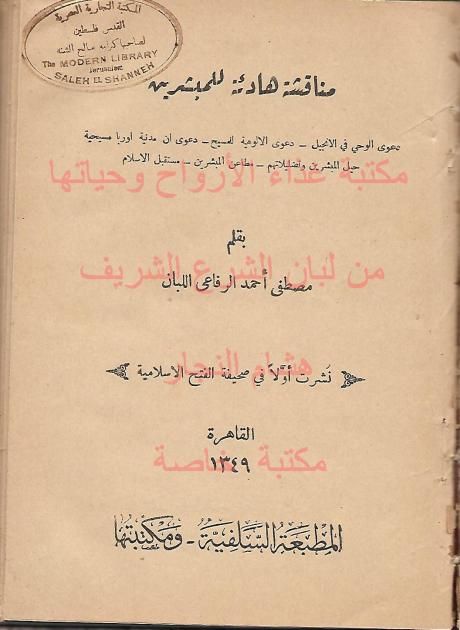 المكتبة التجارية العصرية
القدس فلسطين
لصاحبها كرامه صالح الشنه
The MODERN LIBRARY
Jerusalem
SALEH EL SHANNEH
مناقشة هادئة للمبشرين
دعوى الوحي في الانجيل – دعوى الالوهية للمسيح – دعوى ان مدنية اوربا مسيحية
حيل المبشرين وتضليلاتهم – مطاعن المبشرين – مستقبل الاسلام
مكتبة غذاء الأرواح وحياتها
بقلم
من لبان الشرع الشريف
مصطفى أحمد الرفاعى اللبان
هشام النجار
نشرت أوّلاً في صحيفة الفتح الاسلامية
القاهرة
مكتبة خاصة
١٣٤٩
المطبعة السلفية - ومكتبتها